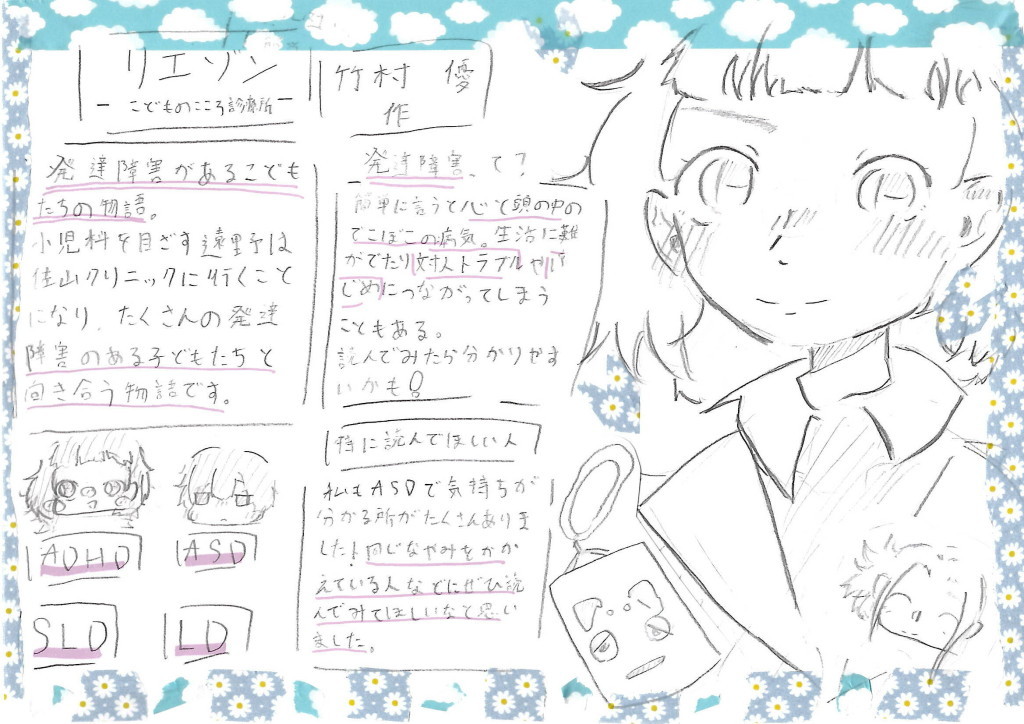 リエゾン
ーこどものこころ診療所ー
竹村 優
作
発達障害があるこども
たちの物語。
小児科を目ざす遠野は
佐山クリニックに行くこと
になり、たくさんの発達
障害のある子どもたちと
向き合う物語です。
発達障害って?
簡単に言うと心と頭の中の
でこぼこの病気。生活に難
がでたり対人トラブルやい
じめにつながってしまう
こともある。
読んでみたら分かりやす
いかも!
ADHD
ASD
SLD
LD
特に読んでほしい人
私もASDで気持ちが
分かる所がたくさんありま
した!同じなやみをかか
えている人などにぜひ読
んでみてほしいなと思い
ました。